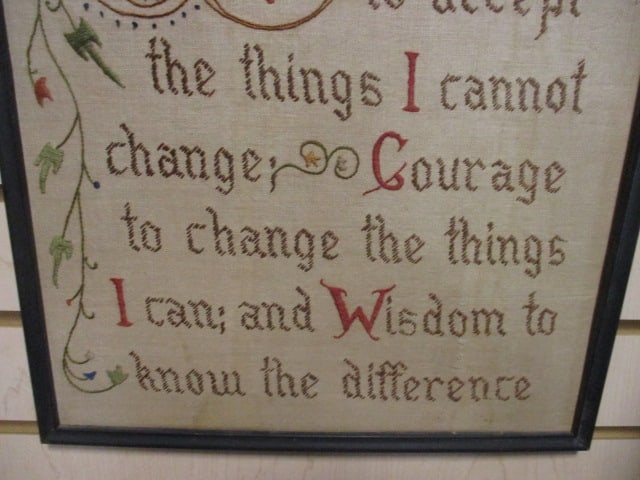 to accept
the things I cannot
change; Courage
to change the things
I can; and Wisdom to
know the difference